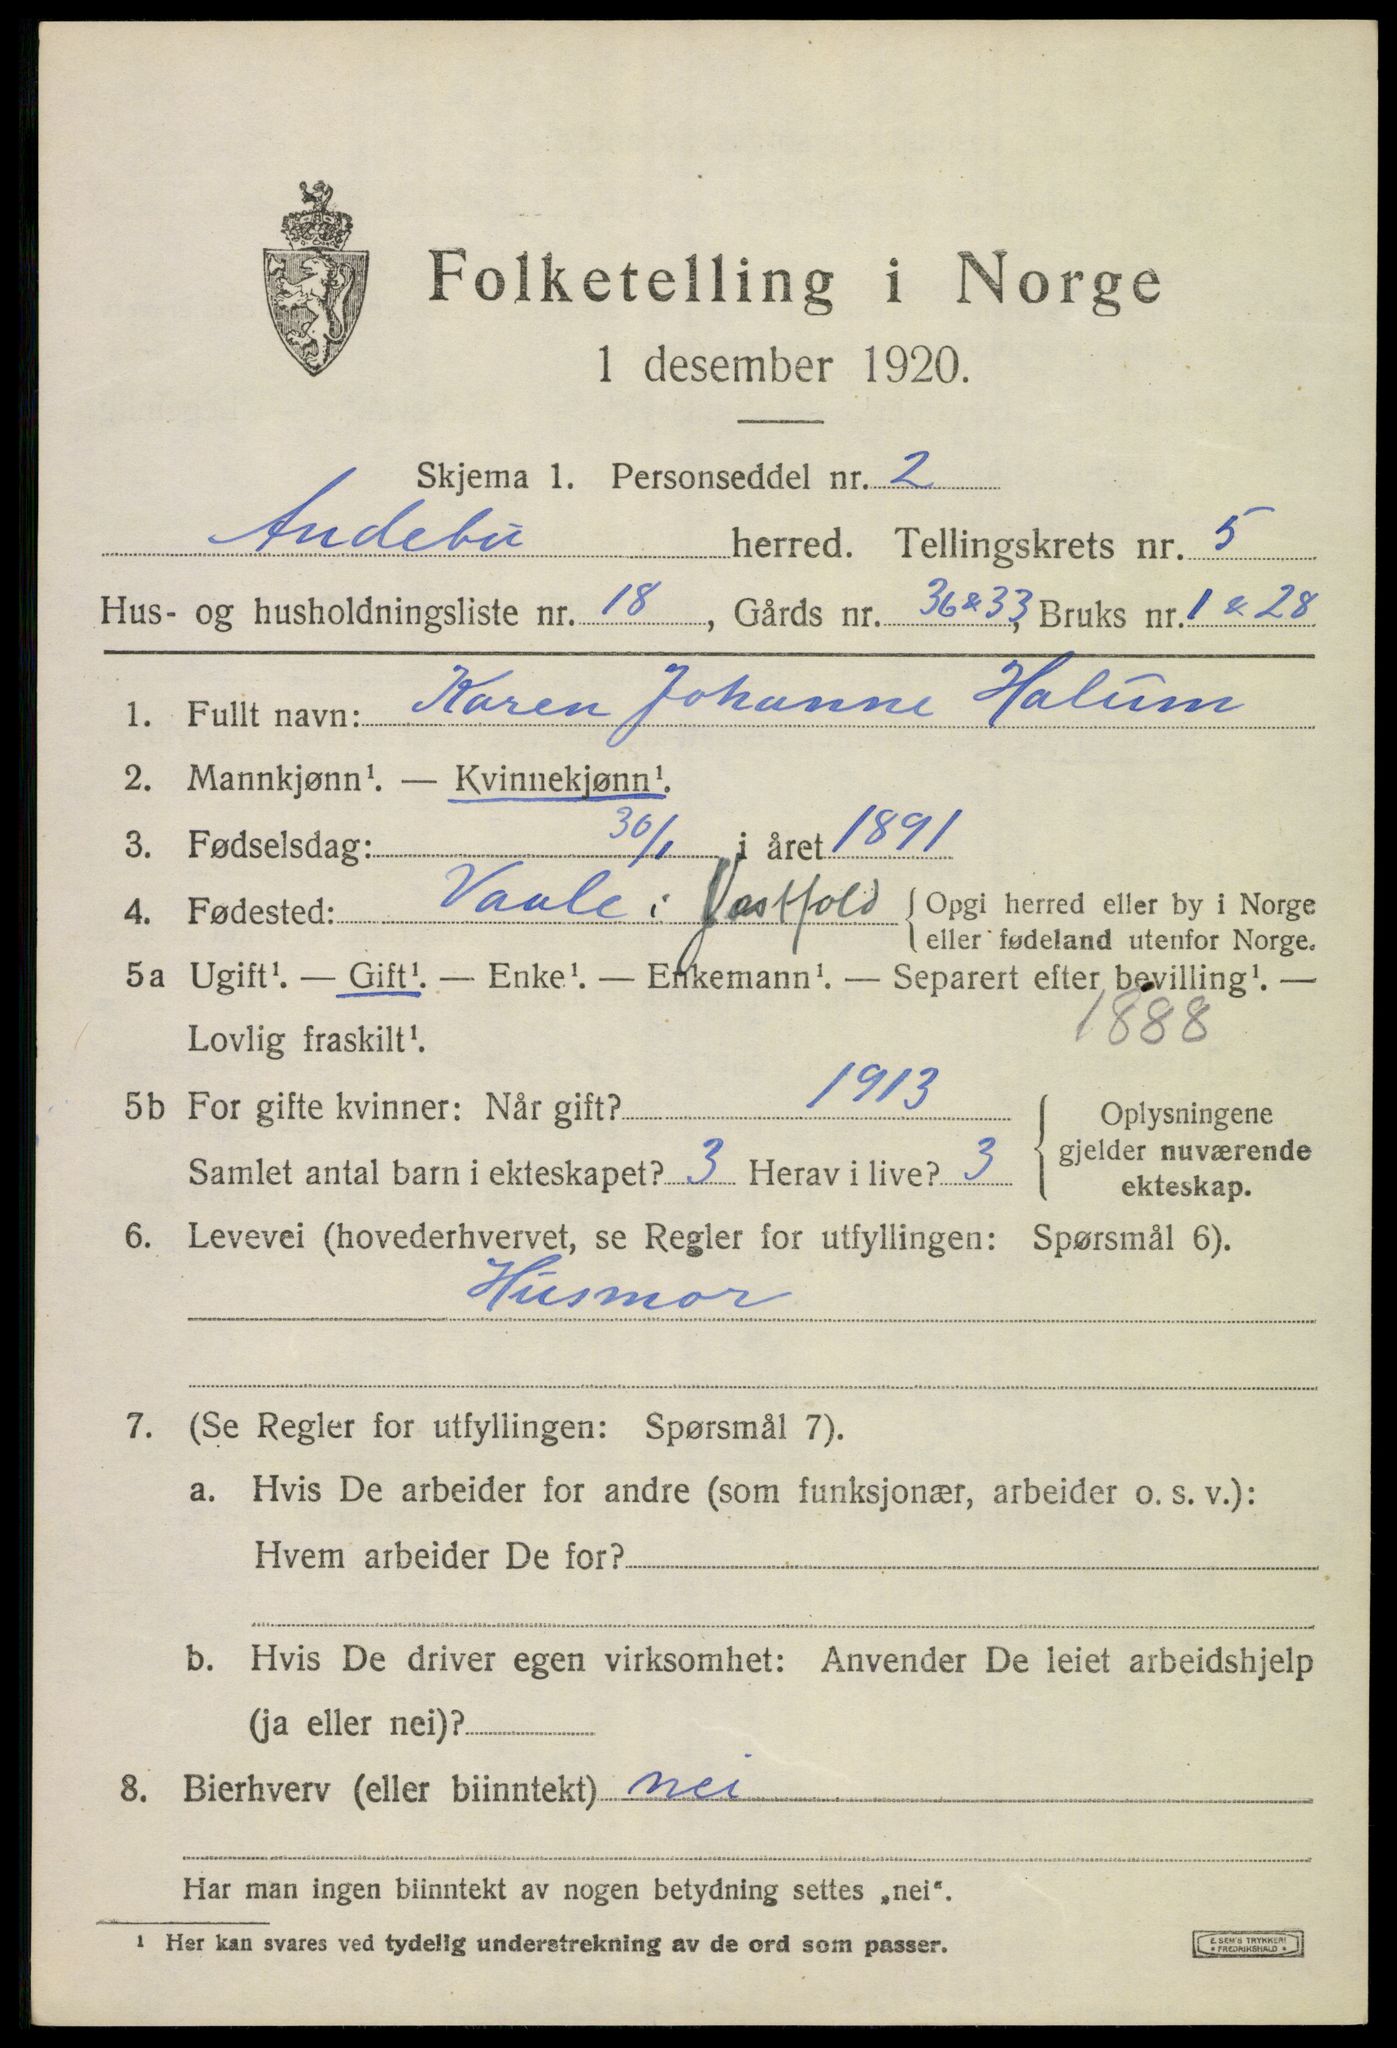 Folketelling i Norge
1 desember 1920.
Skjema 1. Personseddel nr. 2
Andebu herred. Tellingskrets nr. 5
Hus- og husholdningsliste nr. 18, Gårds nr. 36 & 33, Bruks nr. 1 & 28
1. Fullt navn: Karen Johanne Halum
2. Mannkjønn¹. — Kvinnekjønn¹.
3. Fødselsdag: 30/1 i året 1891
4. Fødested: Vaale i Vestfold { Opgi herred eller by i Norge
eller fødeland utenfor Norge.
5a Ugift¹. — Gift¹. — Enke¹. — Enkemann¹. — Separert efter bevilling¹. —
Lovlig fraskilt¹. 1888
5b For gifte kvinner: Når gift? 1913
Samlet antal barn i ekteskapet? 3 Herav i live? 3
{ Oplysningene
gjelder nuværende
ekteskap.
6. Levevei (hovederhvervet, se Regler for utfyllingen: Spørsmål 6).
Husmor
7. (Se Regler for utfyllingen: Spørsmål 7).
a. Hvis De arbeider for andre (som funksjonær, arbeider o. s. v.):
Hvem arbeider De for?
b. Hvis De driver egen virksomhet: Anvender De leiet arbeidshjelp
(ja eller nei)?
8. Bierhverv (eller biinntekt) nei
Har man ingen biinntekt av nogen betydning settes „nei“.
¹ Her kan svares ved tydelig understrekning av de ord som passer.
E. SEM'S TRYKKERI
* FREDRIKSHALD *